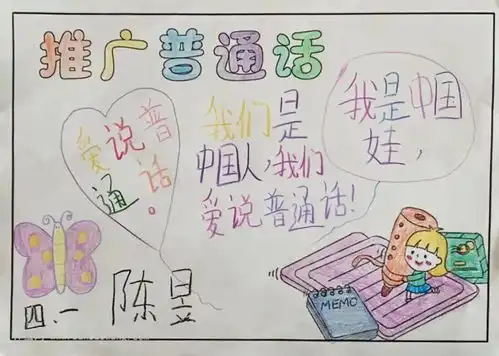 推广普通话
爱说普
通话。
我们是
中国人,我们
爱说普通话!
我是中国
娃,
四、一 陈昱
MEMO